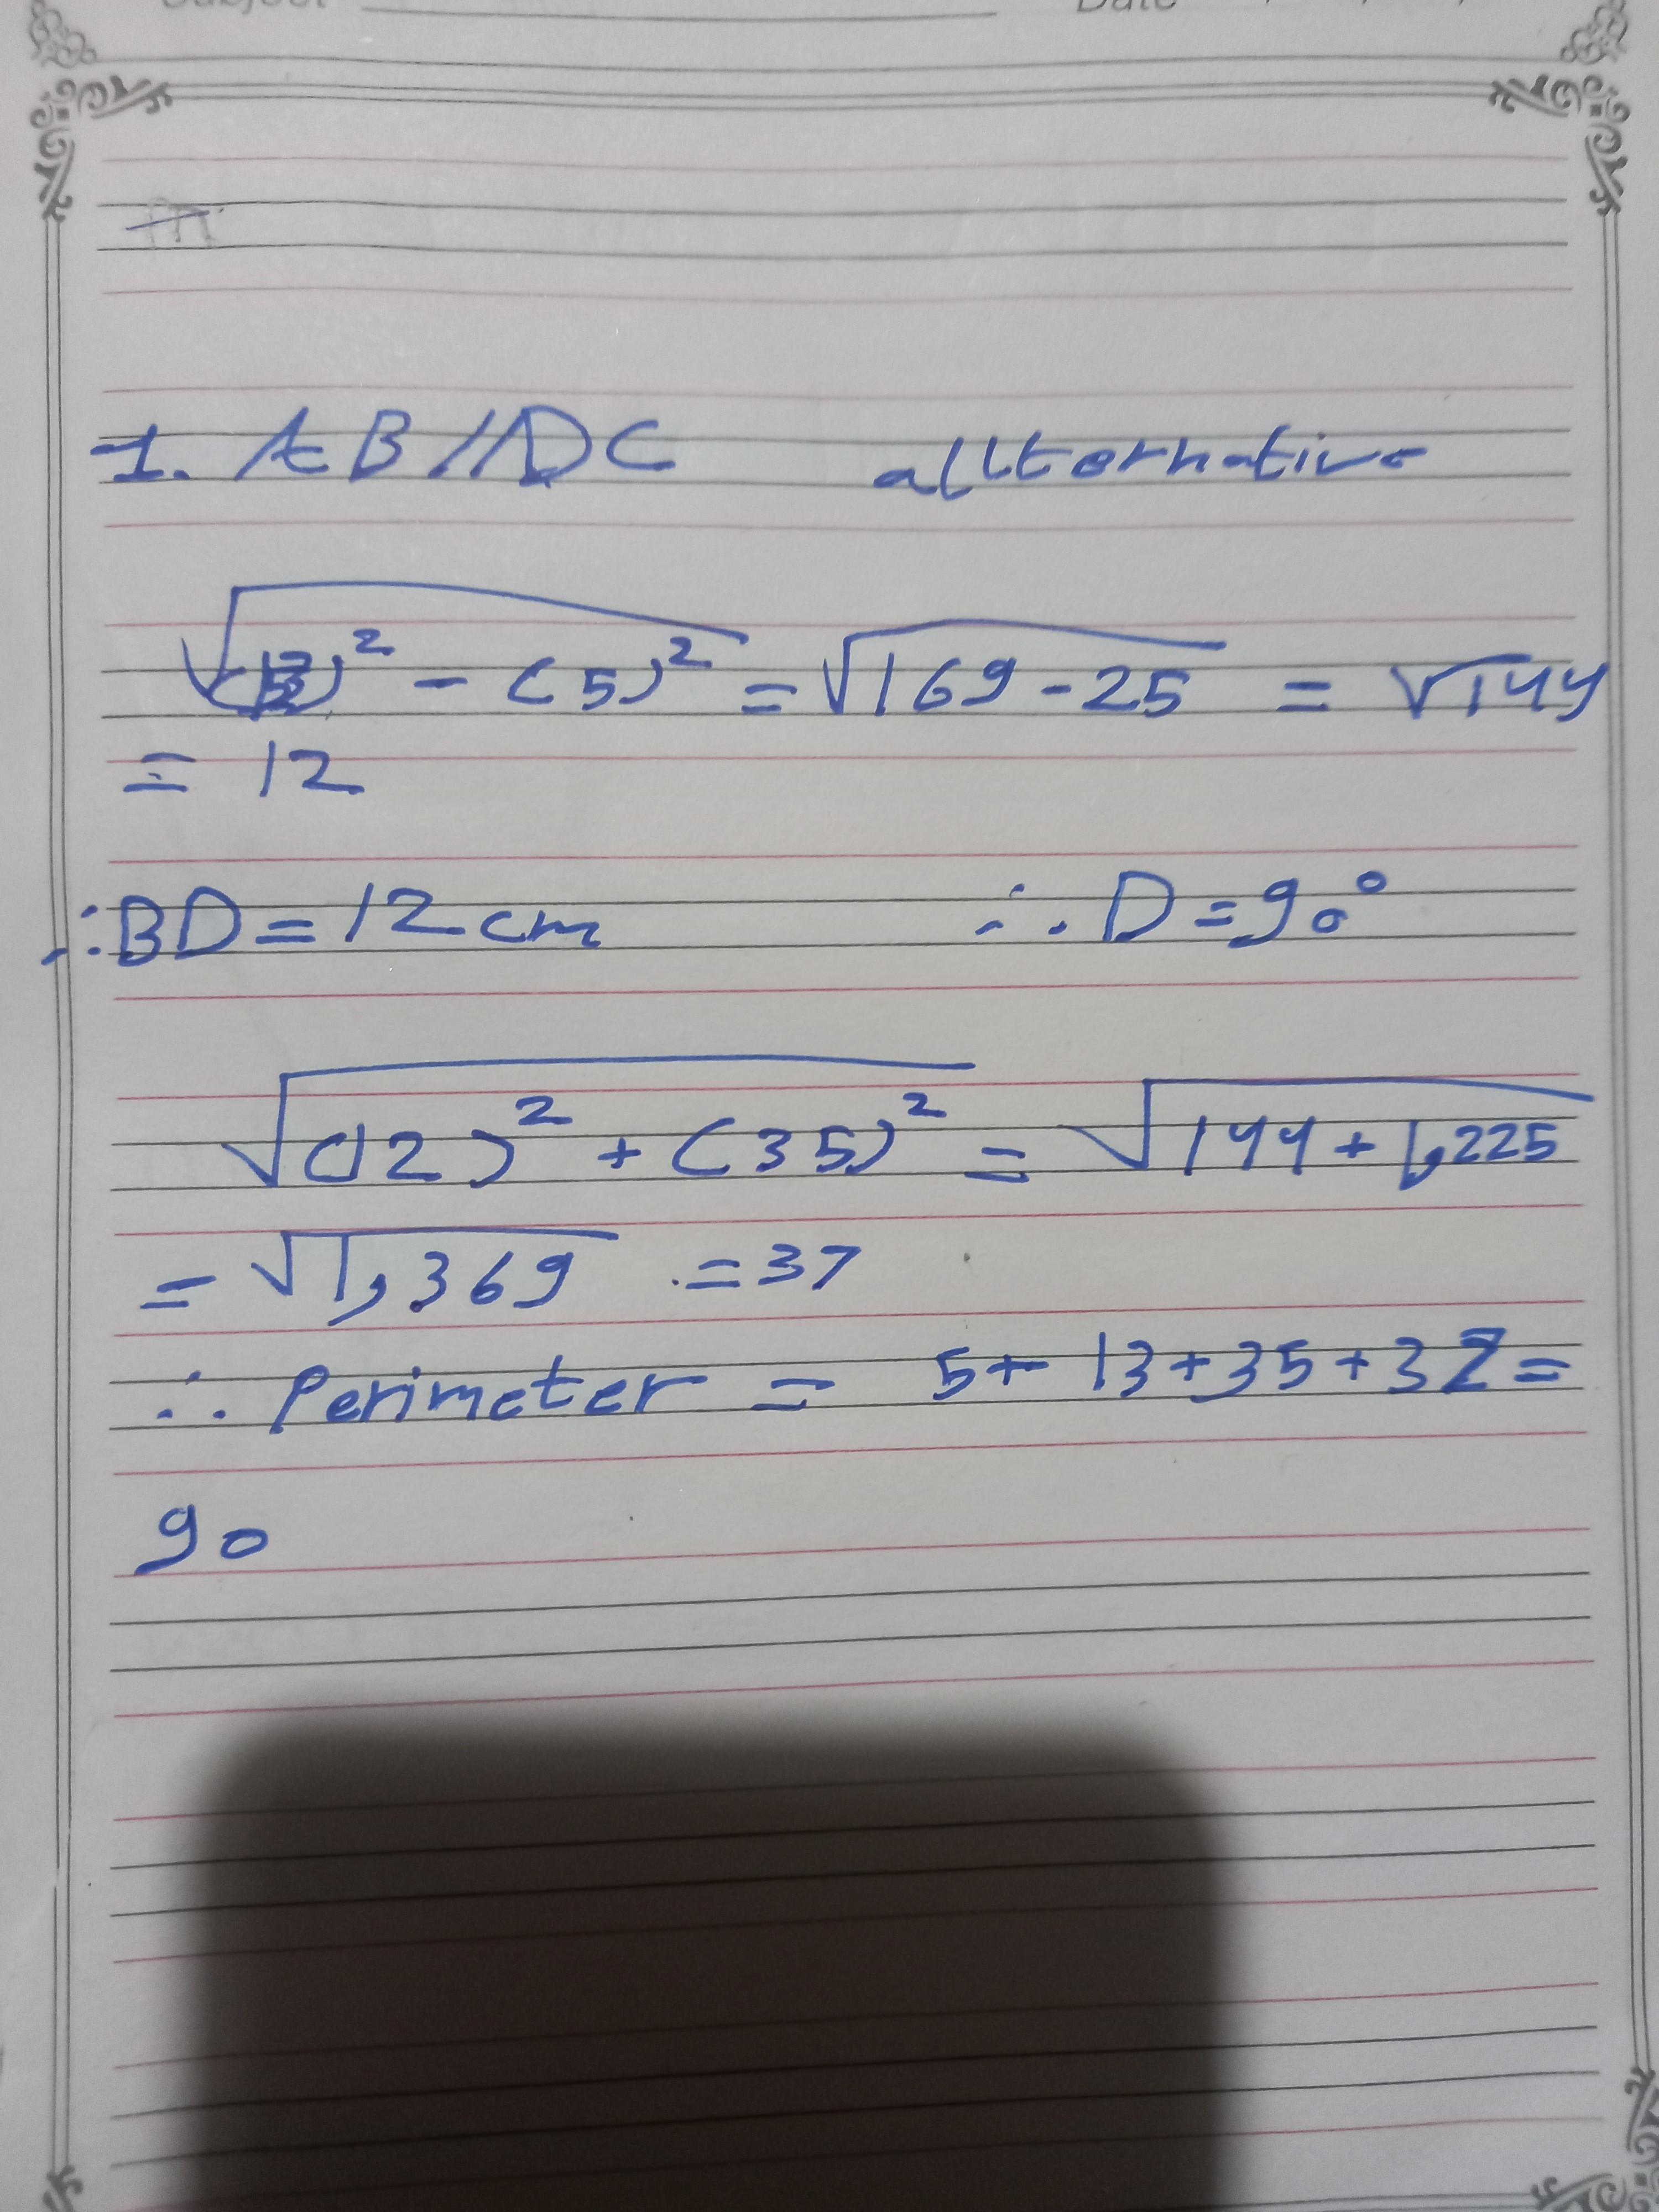 Subject Date
1. AB//DC allternative
√(13)² - (5)² = √169-25 = √144
= 12
∴BD=12cm ∴ D=90°
√(12)² + (35)² = √144+1,225
= √1,369 =37
∴ Perimeter = 5+ 13+35+37=
90